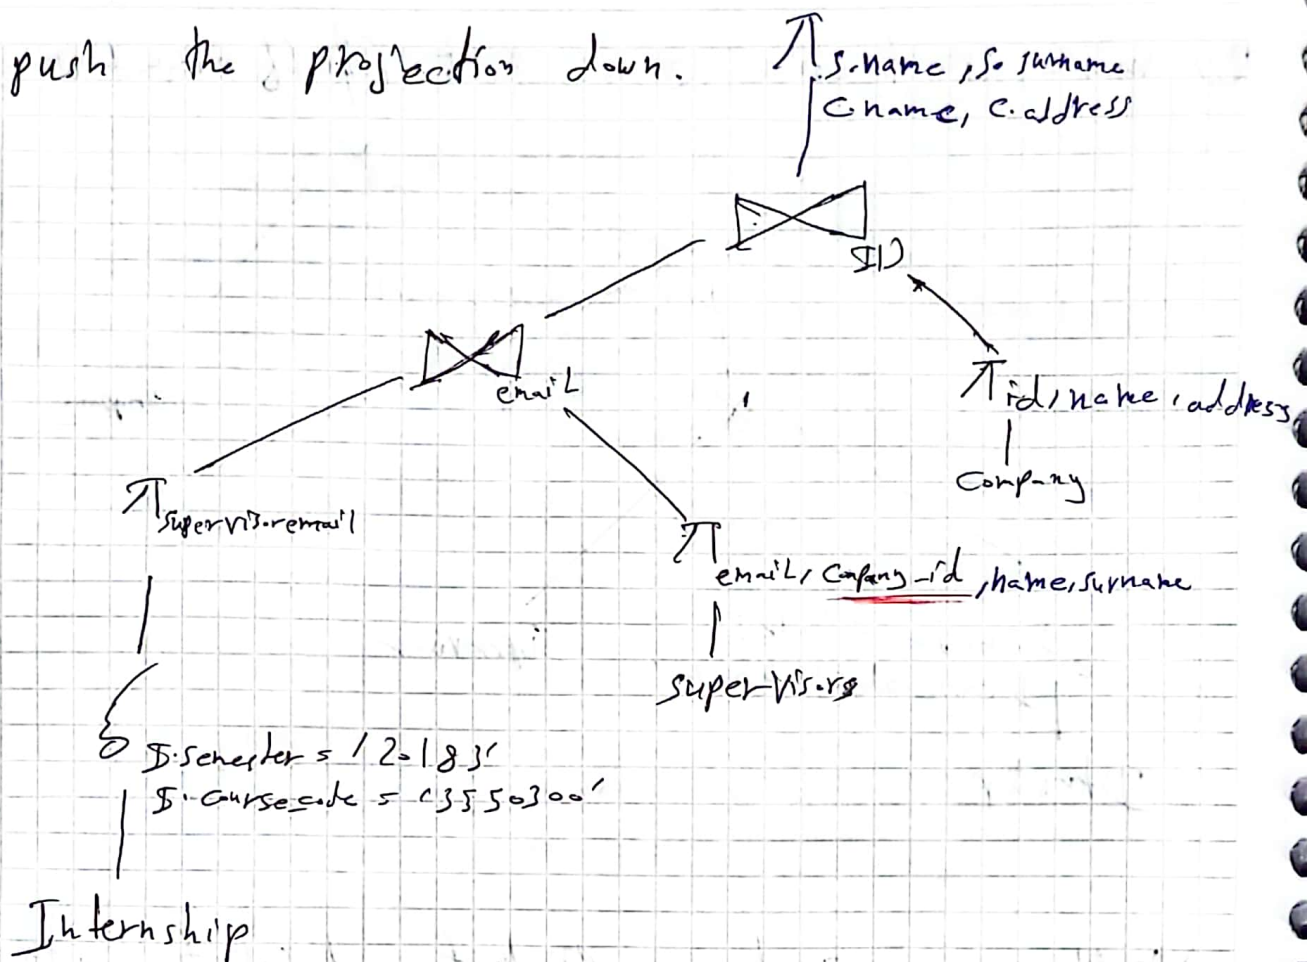 push the projection down.
π s.name, s. surname
c.name, c.address
ID
email
π id, name, address
Company
π supervisoremail
π email, Company_id, name, surname
supervisors
σ I.semester = '20183'
I.course_code = '3550300'
Internship